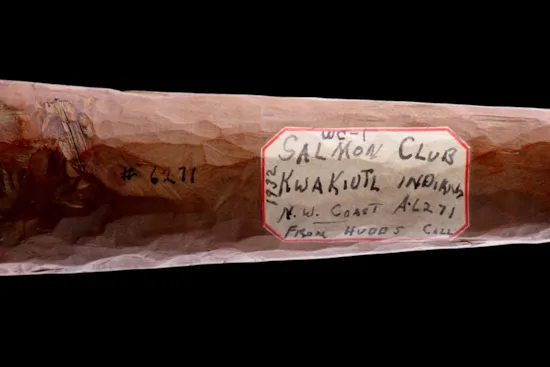 # 6271
WC-1
SALMON CLUB
KWAKIUTL INDIANS
1932
N.W. COAST A-6271
FROM HUBBS COLL